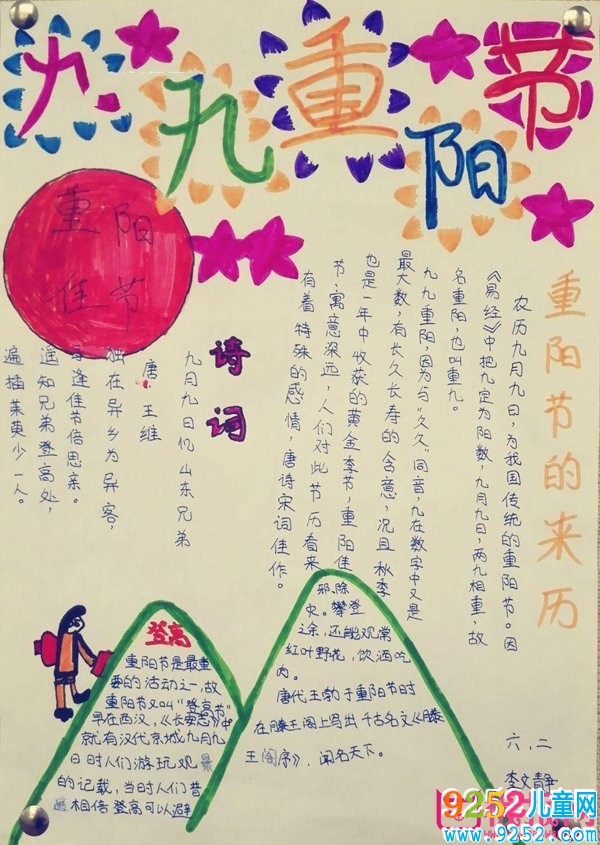 九九重阳节
重阳
佳节
重阳节的来历
农历九月九日,为我国传统的重阳节。因
《易经》中把九定为阳数,九月九日,两九相重,故
名重阳,也叫重九。
九九重阳,因为与“久久”同音,九在数字中又是
最大数,有长久长寿的含意,况且秋季
也是一年中收获的黄金季节,重阳佳
节,寓意深远,人们对此节历看来
有着特殊的感情,唐诗宋词佳作。
诗词
九月九日忆山东兄弟
唐 王维
独在异乡为异客,
每逢佳节倍思亲。
遥知兄弟登高处,
遍插茱萸少一人。
登高
重阳节是最重
要的活动之一,故
重阳节又叫“登高节”
早在西汉,《长安志》中
就有汉代京城九月九
日时人们游玩观景
的记载,当时人们普
遍相信登高可以避
邪、除
灾。攀登
之余,还能观赏
红叶野花,饮酒吃
肉。
唐代王勃于重阳节时
在滕王阁上写出千古名文《滕
王阁序》,闻名天下。
六、二
李文静
9252儿童网
www.9252.com